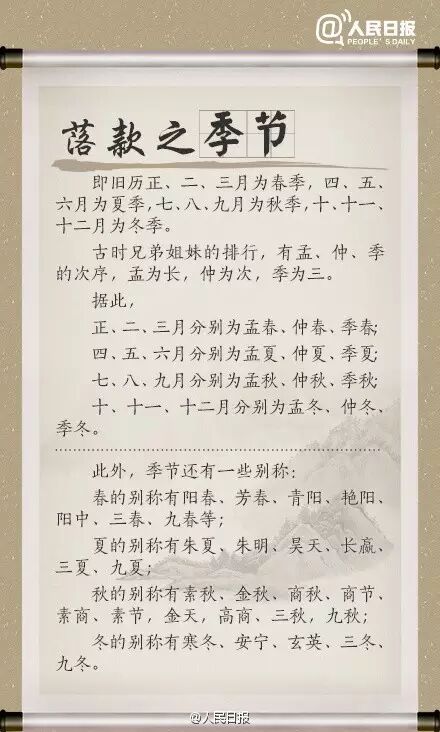 @人民日报
PEOPLE'S DAILY
落款之季节
即旧历正、二、三月为春季，四、五、
六月为夏季，七、八、九月为秋季，十、十一、
十二月为冬季。
古时兄弟姐妹的排行，有孟、仲、季
的次序，孟为长，仲为次，季为三。
据此，
正、二、三月分别为孟春、仲春、季春；
四、五、六月分别为孟夏、仲夏、季夏；
七、八、九月分别为孟秋、仲秋、季秋；
十、十一、十二月分别为孟冬、仲冬、
季冬。
此外，季节还有一些别称：
春的别称有阳春、芳春、青阳、艳阳、
阳中、三春、九春等；
夏的别称有朱夏、朱明、昊天、长嬴、
三夏、九夏；
秋的别称有素秋、金秋、商秋、商节、
素商、素节，金天，高商、三秋，九秋；
冬的别称有寒冬、安宁、玄英、三冬、
九冬。
@人民日报